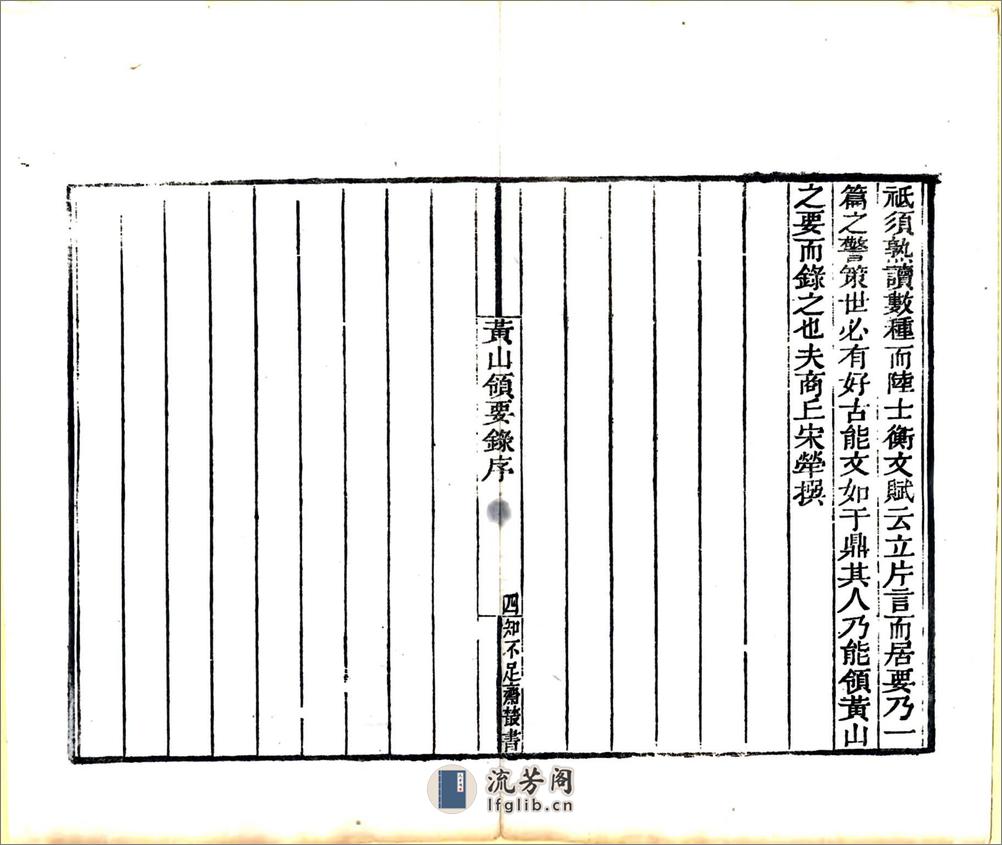 祗須熟讀數種而陸士衡文賦云立片言而居要乃一
篇之警策世必有好古能文如于鼎其人乃能領黃山
之要而錄之也夫商丘宋犖撰
黃山領要錄序
四
知不足齋叢書
流芳阁
lfglib.cn